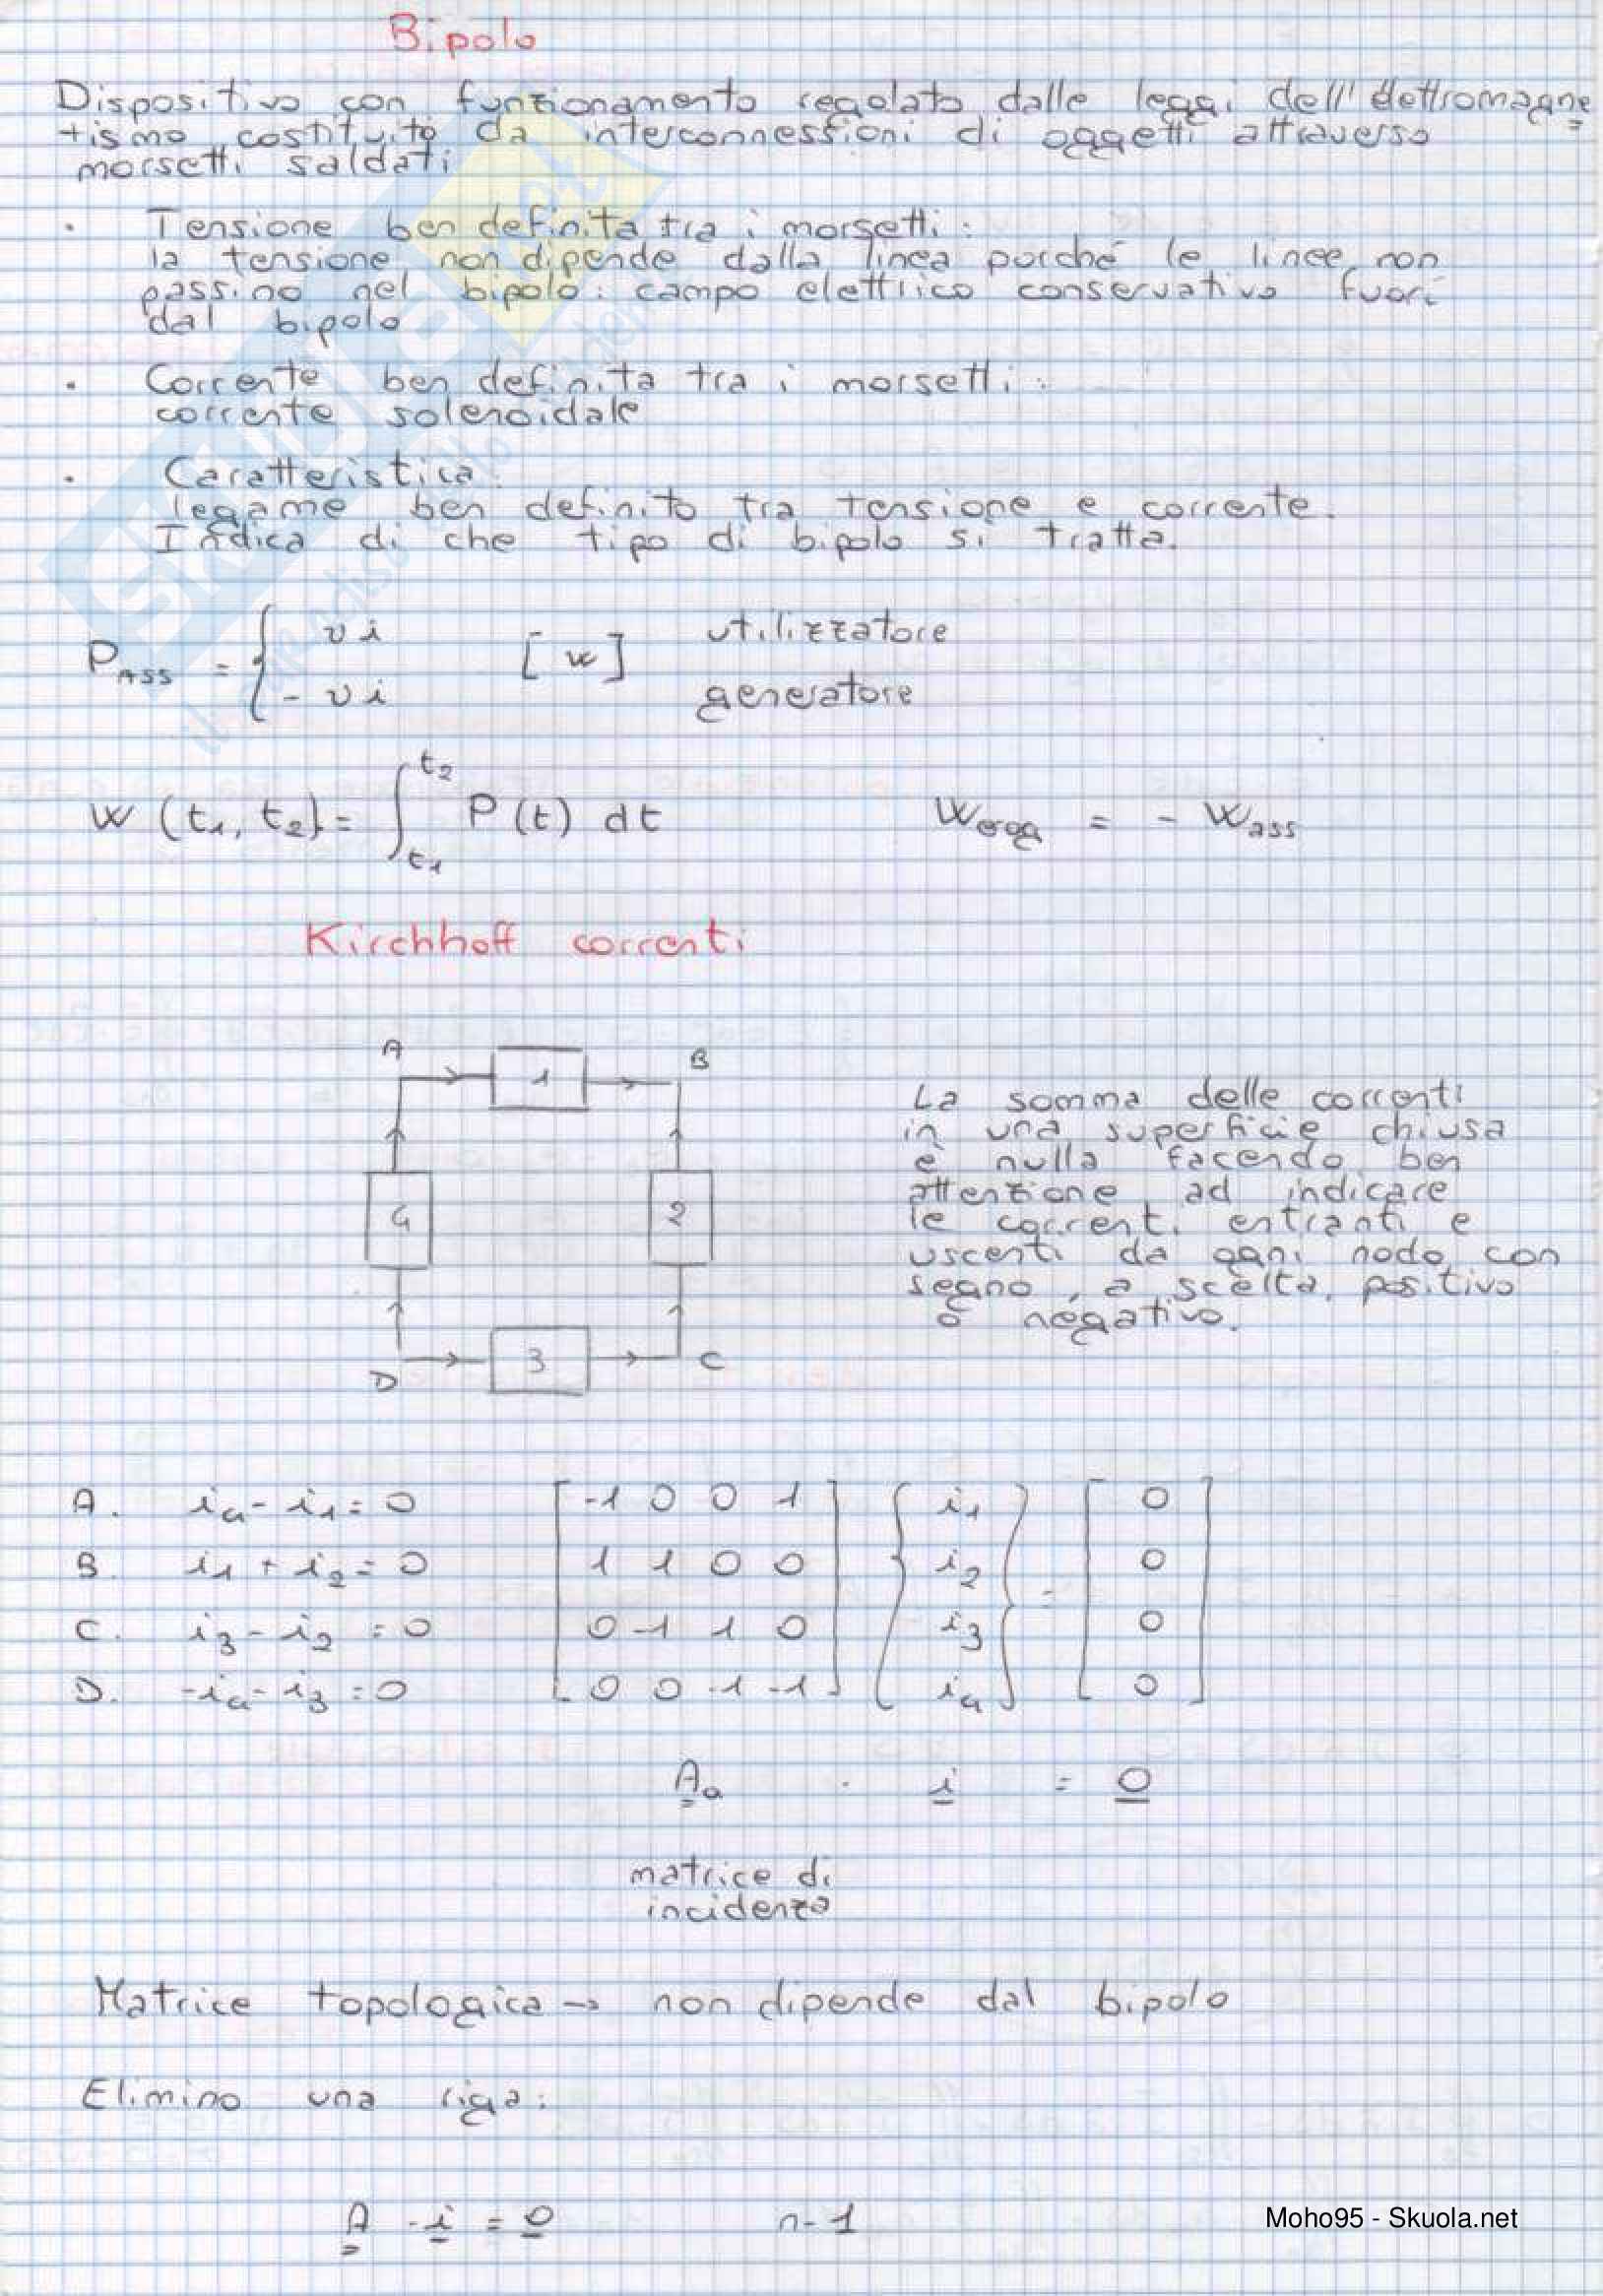 Bipolo
Dispositivo con funzionamento regolato dalle leggi dell'elettromagne
tismo costituito da interconnessioni di oggetti attraverso
morsetti saldati
· Tensione ben definita tra i morsetti:
la tensione non dipende dalla linea purché le linee non
passino nel bipolo: campo elettrico conservativo fuori
dal bipolo
· Corrente ben definita tra i morsetti:
corrente solenoidale
· Caratteristica:
legame ben definito tra tensione e corrente.
Indica di che tipo di bipolo si tratta.
P_ASS = { v i [W] utilizzatore
- v i generatore
W (t1, t2) = ∫_t1^t2 P(t) dt W_erog = - W_ass
Kirchhoff correnti
A 1 B
4 2
D 3 C
La somma delle correnti
in una superficie chiusa
è nulla facendo ben
attenzione ad indicare
le correnti entranti e
uscenti da ogni nodo con
segno, a scelta, positivo
o negativo.
A. i4 - i1 = 0 [ -1 0 0 1 ] { i1 } = [ 0 ]
B. i1 + i2 = 0 [ 1 1 0 0 ] { i2 } [ 0 ]
C. i3 - i2 = 0 [ 0 -1 1 0 ] { i3 } [ 0 ]
D. -i4 - i3 = 0 [ 0 0 -1 -1 ] { i4 } [ 0 ]
Aa · i = 0
matrice di
incidenza
Matrice topologica → non dipende dal bipolo
Elimino una riga:
A · i = 0 n-1
Moho95 - Skuola.net